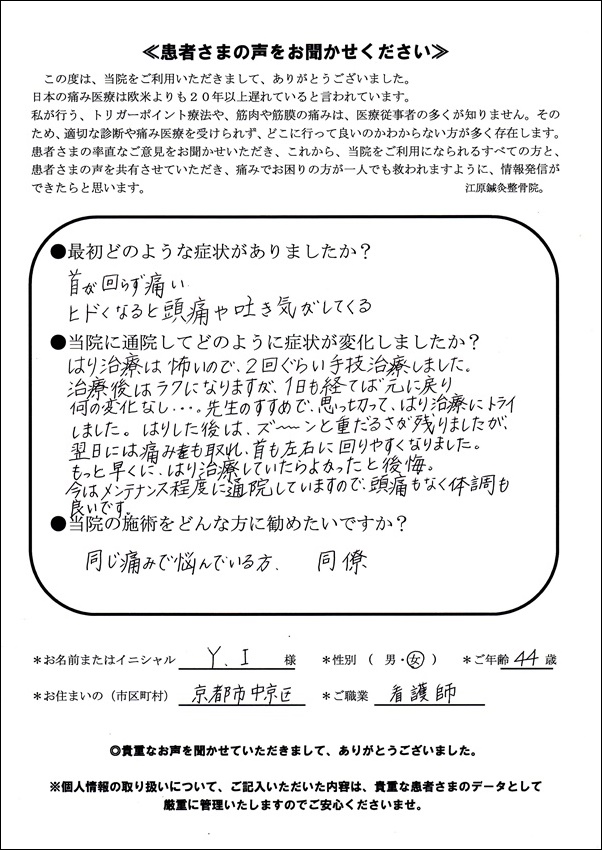 ≪患者さまの声をお聞かせください≫
この度は、当院をご利用いただきまして、ありがとうございました。
日本の痛み医療は欧米よりも２０年以上遅れていると言われています。
私が行う、トリガーポイント療法や、筋肉や筋膜の痛みは、医療従事者の多くが知りません。その
ため、適切な診断や痛み医療を受けられず、どこに行って良いのかわからない方が多く存在します。
患者さまの率直なご意見をお聞かせいただき、これから、当院をご利用になられるすべての方と、
患者さまの声を共有させていただき、痛みでお困りの方が一人でも救われますように、情報発信が
できたらと思います。 江原鍼灸整骨院。
●最初どのような症状がありましたか？
首が回らず痛い
ヒドくなると頭痛や吐き気がしてくる
●当院に通院してどのように症状が変化しましたか？
はり治療は怖いので、2回ぐらい手技治療しました。
治療後はラクになりますが、1日も経てば元に戻り
何の変化なし・・・。先生のすすめで、思い切って、はり治療にトライ
しました。はりした後は、ズ〜〜ンと重だるさが残りましたが、
翌日には痛みも取れ、首も左右に回りやすくなりました。
もっと早くに、はり治療していたらよかったと後悔。
今はメンテナンス程度に通院していますので、頭痛もなく体調も
良いです。
●当院の施術をどんな方に勧めたいですか？
同じ痛みで悩んでいる方、 同僚
＊お名前またはイニシャル Y. I 様 ＊性別（ 男・女 ） ＊ご年齢 44 歳
＊お住まいの（市区町村） 京都市中京区 ＊ご職業 看護師
◎貴重なお声を聞かせていただきまして、ありがとうございました。
※個人情報の取り扱いについて、ご記入いただいた内容は、貴重な患者さまのデータとして
厳重に管理いたしますのでご安心くださいませ。